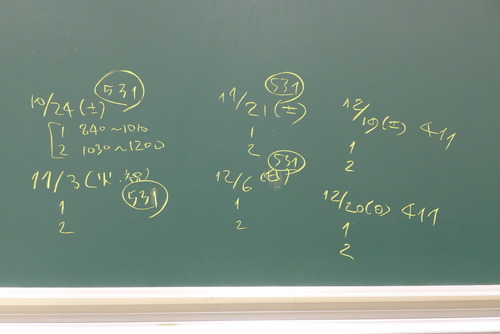 10/24(土) 531
1 840~1010
2 1030~1200
11/3(火.祝) 531
1
2
11/21(土) 531
1
2
12/6(日) 531
1
2
12/19(土) 411
1
2
12/20(日) 411
1
2